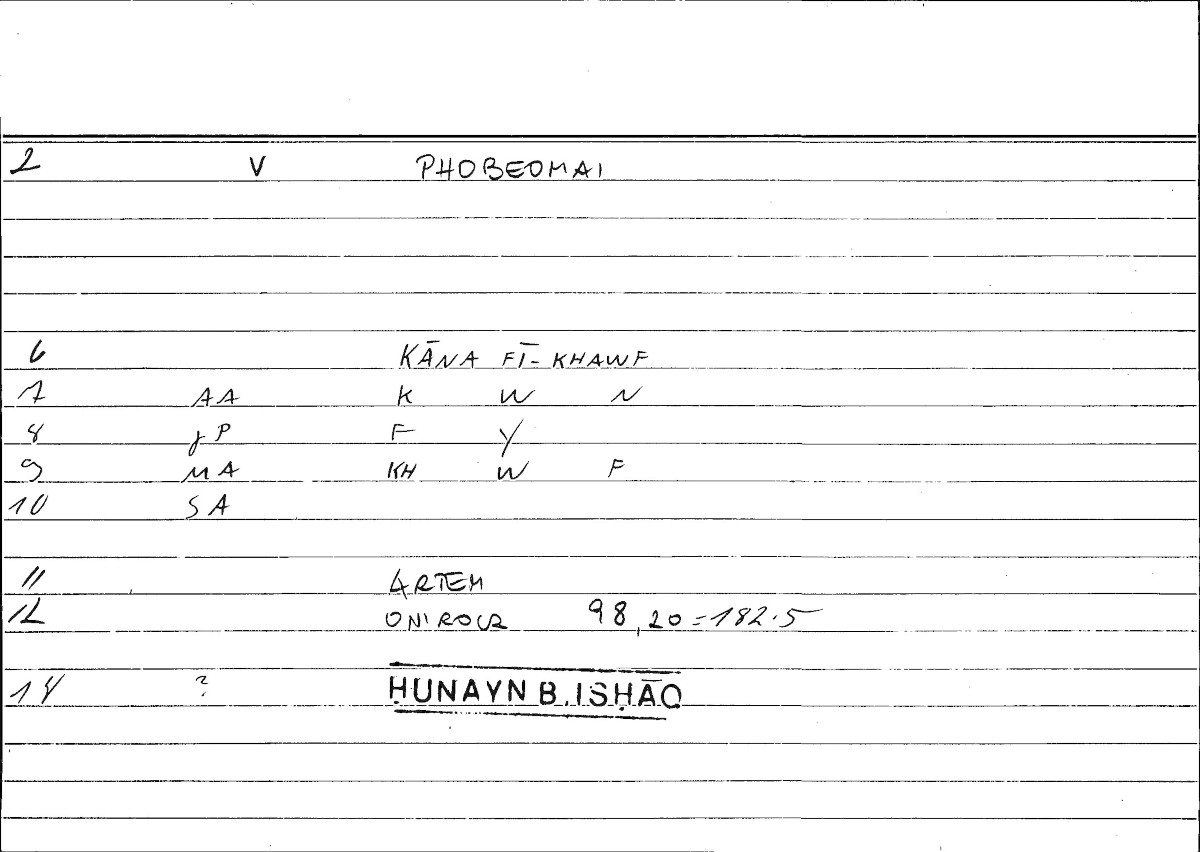 2 V PHOBEOMAI
6 KĀNA FĪ-KHAWF
7 AA K W N
8 JP F Y
9 MA KH W F
10 SA
11 ARTEM
12 ONIROCR 98,20=182.5
14 ? ḤUNAYN B. ISḤĀQ